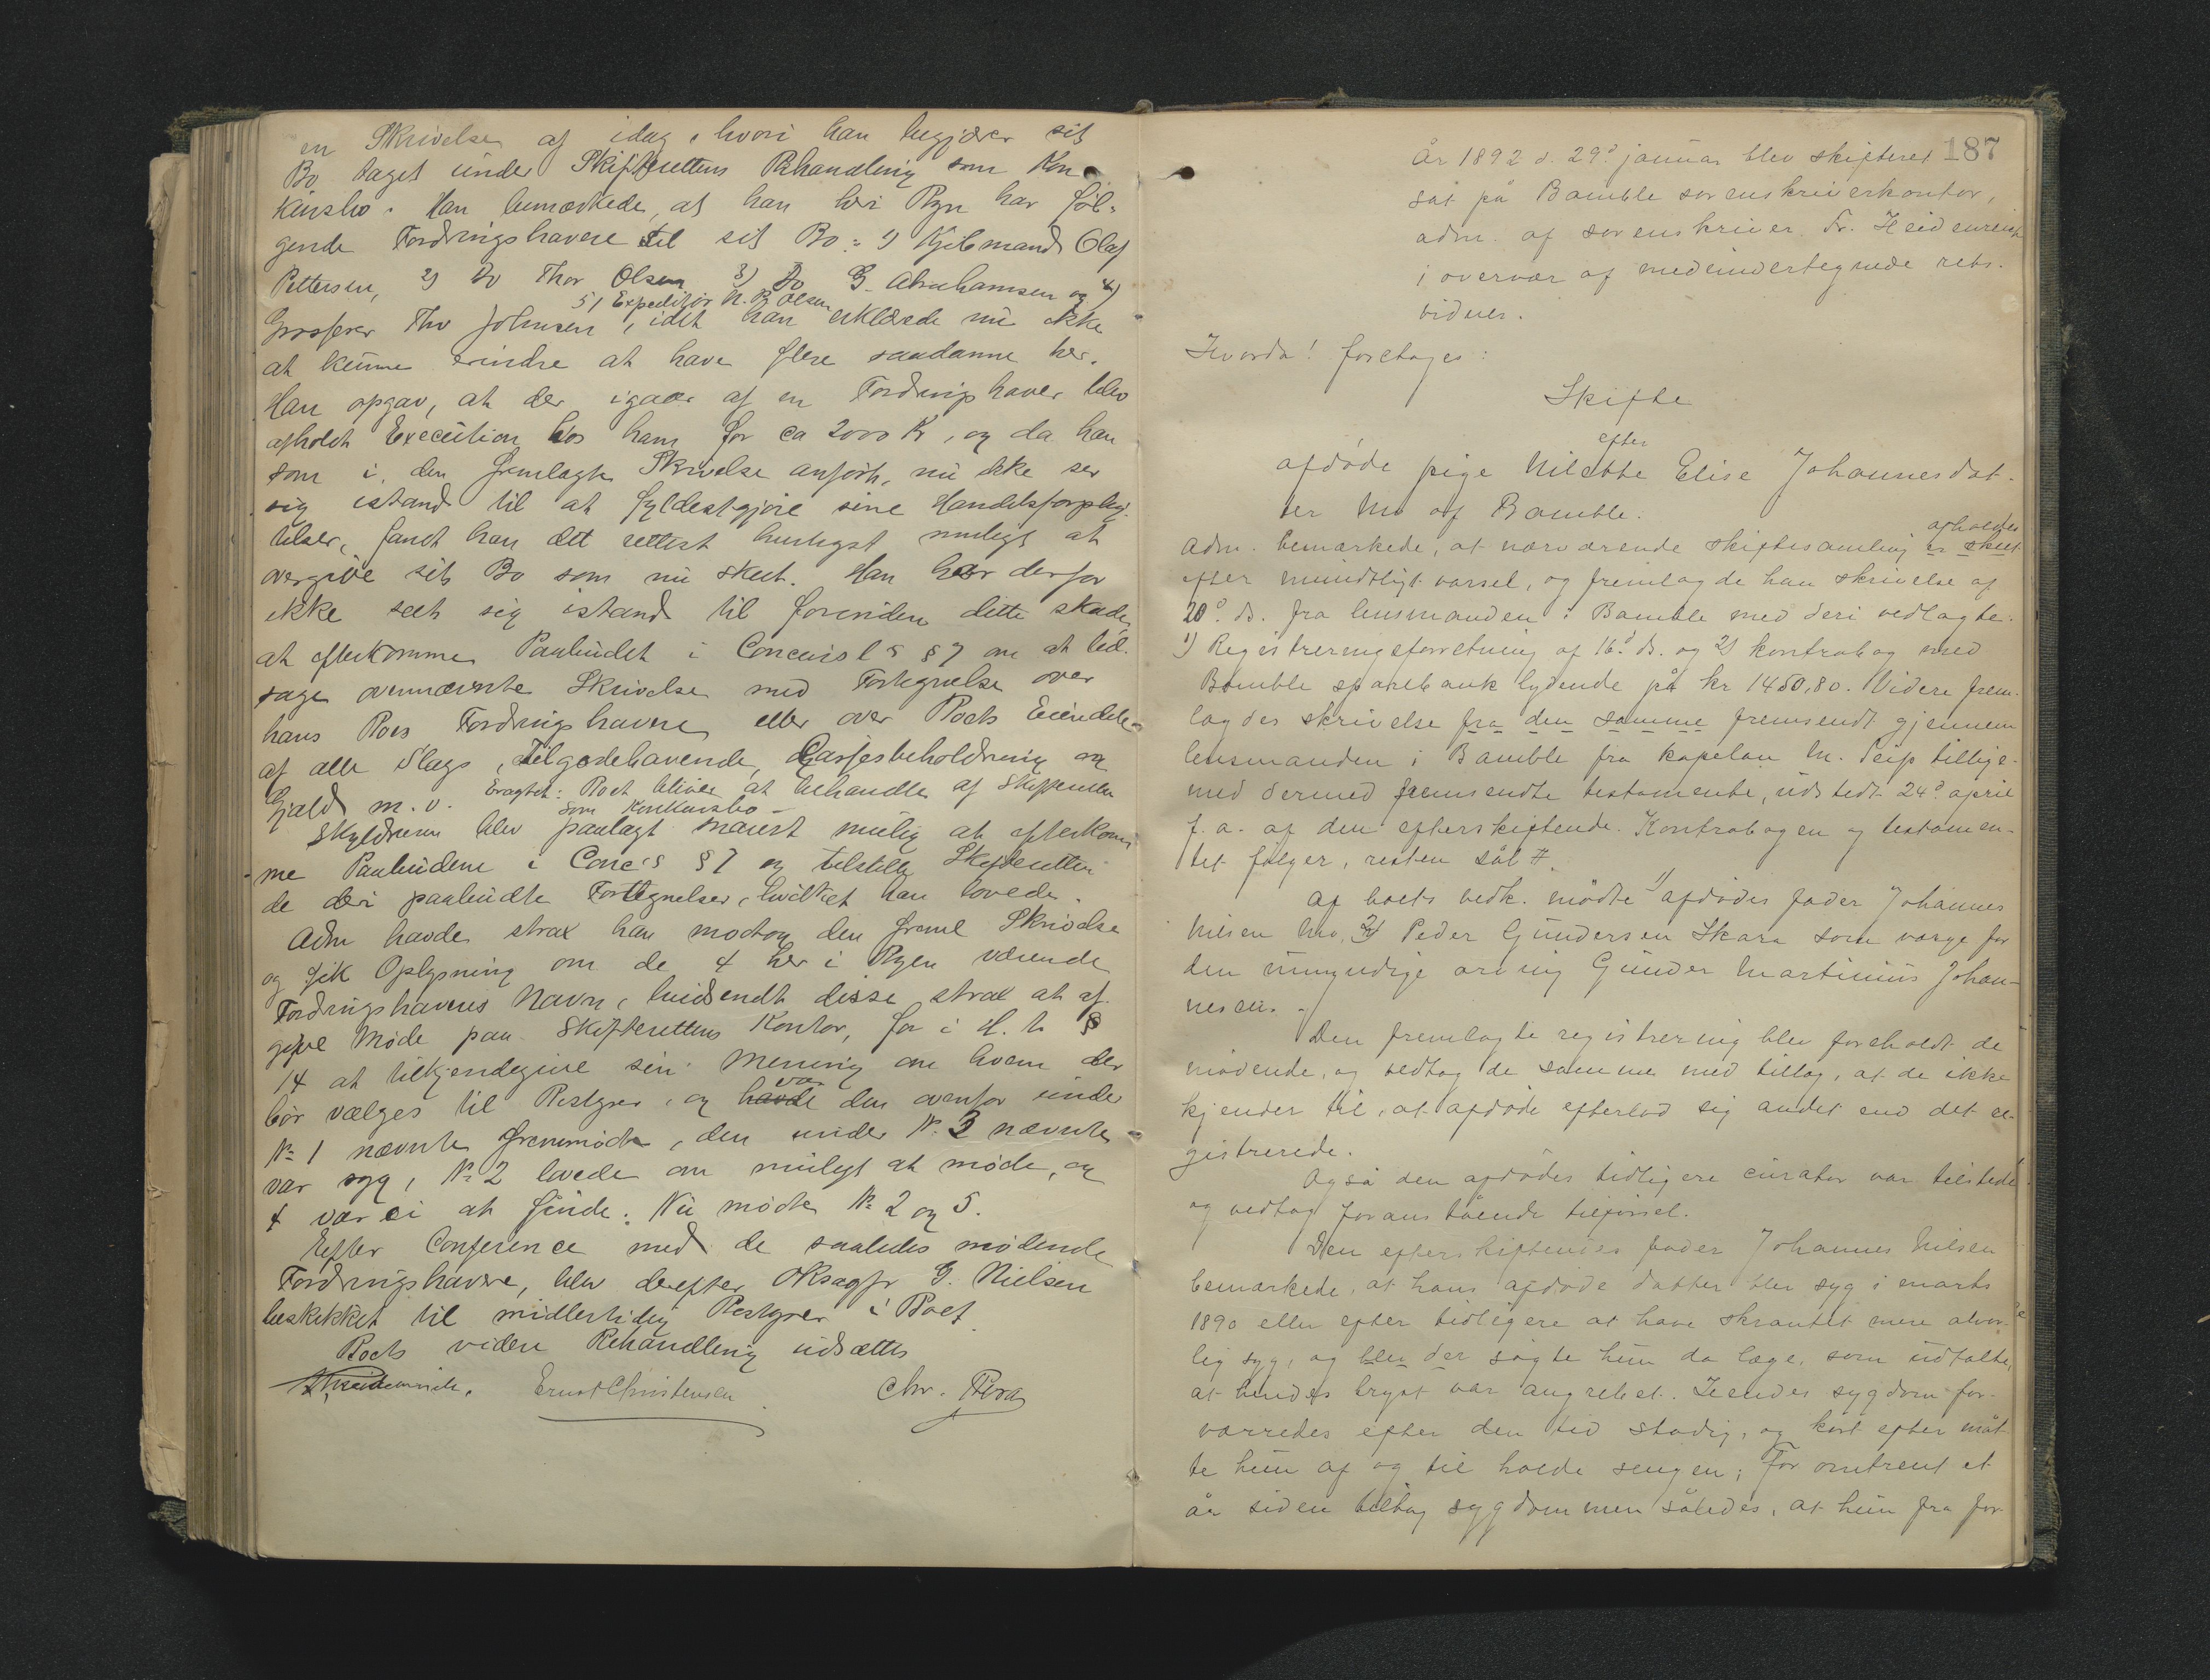 en Skrivelse af idag, hvori han begjærer sit
Bo taget under Skifterettens Behandling som Kon-
kursbo. Han bemærkede, at han her i Byn har föl-
gende Fordringshavere til sit Bo: 1) Kjöbmand Olaf
Pettersen, 2) Do Thor Olsen 3) Do G. Abrahamsen og 4)
5) Expeditör N. B. Olsen
Grosserer Thv Johnsen, idet han erklærede nu ikke
at kunne erindre at have flere saadanne her.
Han opgav, at der igaar af en Fordringshaver blev
afholdt Execution hos ham for ca 2000 Kr, og da han
som i den fremlagte Skrivelse anfört, nu ikke ser
sig istand til at fyldestgjöre sine Handelsforplig-
telser, fandt han det rettest hurtigst muligt at
overgive sit Bo som nu skeet. Han har derfor
ikke seet sig istand til forinden dette skede,
at efterkomme Paabudet i Concursl s § 7 om at led-
sage ovennævnte Skrivelse med Fortegnelse over
hans Boes Fordringshavere eller over Boets Eiendele
af alle Slags, Tilgodehavende, Cassebeholdning og
Gjæld m. v. Eragtet: Boet bliver at behandle af Skifteretten
som Konkursbo -
Skyldneren blev paalagt snarest mulig at efterkom-
me Paabudene i Conc's § 7 og tilstille Skifteretten
de deri paabudte Fortegnelser, hvilket han lovede.
Adm havde strax han modtog den freml Skrivelse
og fik Oplysning om de 4 her i Byen værende
Fordringshaveres Navn, tilsendt disse strax at af-
give Möde paa Skifterettens Kontor, for i H. t §
14 at tilkjendegive sin Mening om hvem der
bör vælges til Bestyrer, og havde den ovenfor under
var
No 1 nævnte fremmödt, den under No 3 nævnte
var syg, No 2 lovede om muligt at möde, og
4 var ei at finde. Nu mödte No 2 og 5.
Efter Conference med de saaledes mödende
Fordringshavere, blev derefter ORsagfr G. Nielsen
beskikket til midlertidig Bestyrer i Boet.
Boets videre Behandling udsættes
Fr. Heidenreich. Ernst Christensen Chr.
187
År 1892 d. 29d januar blev skifteret
sat på Bamble sorenskriverkontor,
adm. af sorenskriver Fr. Heidenreich
i overvær af medundertegnede rets-
vidner.
Hvorda! foretages:
Skifte
efter
afdøde pige Nilette Elise Johannesdat-
ter Mo af Bamble.
afholdes
Adm. bemærkede, at nærværende skiftesamling er skeet
efter mundtligt varsel, og fremlagde han skrivelse af
20d ds. fra lensmanden i Bamble med deri vedlagte:
1) Registreringsforretning af 16d ds. og 2) kontrabog med
Bamble sparebank lydende på kr 1450,80. Videre frem-
lagdes skrivelse fra den samme fremsendt gjennem
lensmanden i Bamble fra kapelan M. Seip tillige-
med dermed fremsendte testamente, udstedt 24d april
f. a. af den efterskiftende. Kontrabogen og testamen-
tet følger, resten sål #.
Af boets vedk. mødte 1) afdødes fader Johannes
Nilsen Mo, 2) Peder Gundersen Skara som værge for
den umyndige arving Gunder Martinius Johan-
nesen. -
Den fremlagte registrering blev foreholdt de
mødende, og vedtog de samme med tillæg, at de ikke
kjender til, at afdøde efterlod sig andet end det re-
gistrerede.
Også den afdødes tidligere curator var tilstede
og vedtog foranstående tilførsel.
Den efterskiftendes fader Johannes Nilsen
bemærkede, at hans afdøde datter blev syg i marts
1890 eller efter tidligere at have skrantet mere alvor-
lig syg, og blev der søgte hun da læge, som udtalte,
at hendes bryst var angrebet. Hendes sygdom for-
værredes efter den tid stadig, og kort efter måt-
te hun af og til holde sengen; For omtrent et
år siden tiltog sygdommen således, at hun fra for-